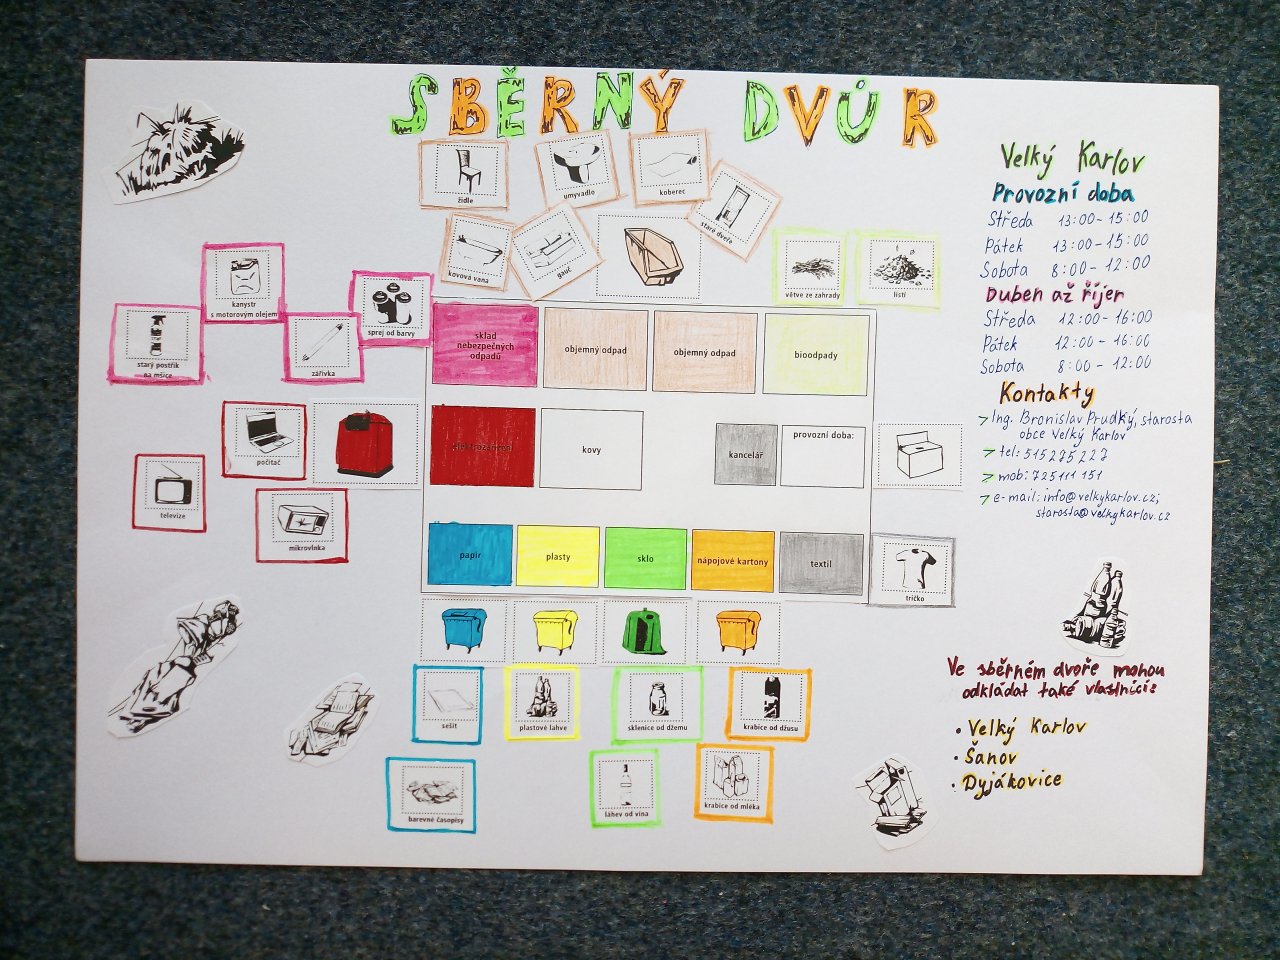 SBĚRNÝ DVŮR
židle
umyvadlo
koberec
staré dveře
kovová vana
gauč
větve ze zahrady
listí
kanystr
s motorovým olejem
sprej od barvy
starý postřik
na mšice
zářivka
sklad
nebezpečných
odpadů
objemný odpad
objemný odpad
bioodpady
počítač
televize
mikrovlnka
elektrozařízení
kovy
kancelář
provozní doba:
papír
plasty
sklo
nápojové kartony
textil
tričko
sešit
plastové lahve
sklenice od džemu
krabice od džusu
barevné časopisy
láhev od vína
krabice od mléka
Velký Karlov
Provozní doba
Středa 13:00-15:00
Pátek 13:00-15:00
Sobota 8:00-12:00
Duben až říjer
Středa 12:00-16:00
Pátek 12:00-16:00
Sobota 8:00-12:00
Kontakty
Ing. Bronislav Prudký, starosta
obce Velký Karlov
tel: 515275227
mob: 725111 151
e-mail: info@velkykarlov.cz;
starosta@velkykarlov.cz
Ve sběrném dvoře mohou
odkládat také vlastníci:
• Velký Karlov
• Šanov
• Dyjákovice